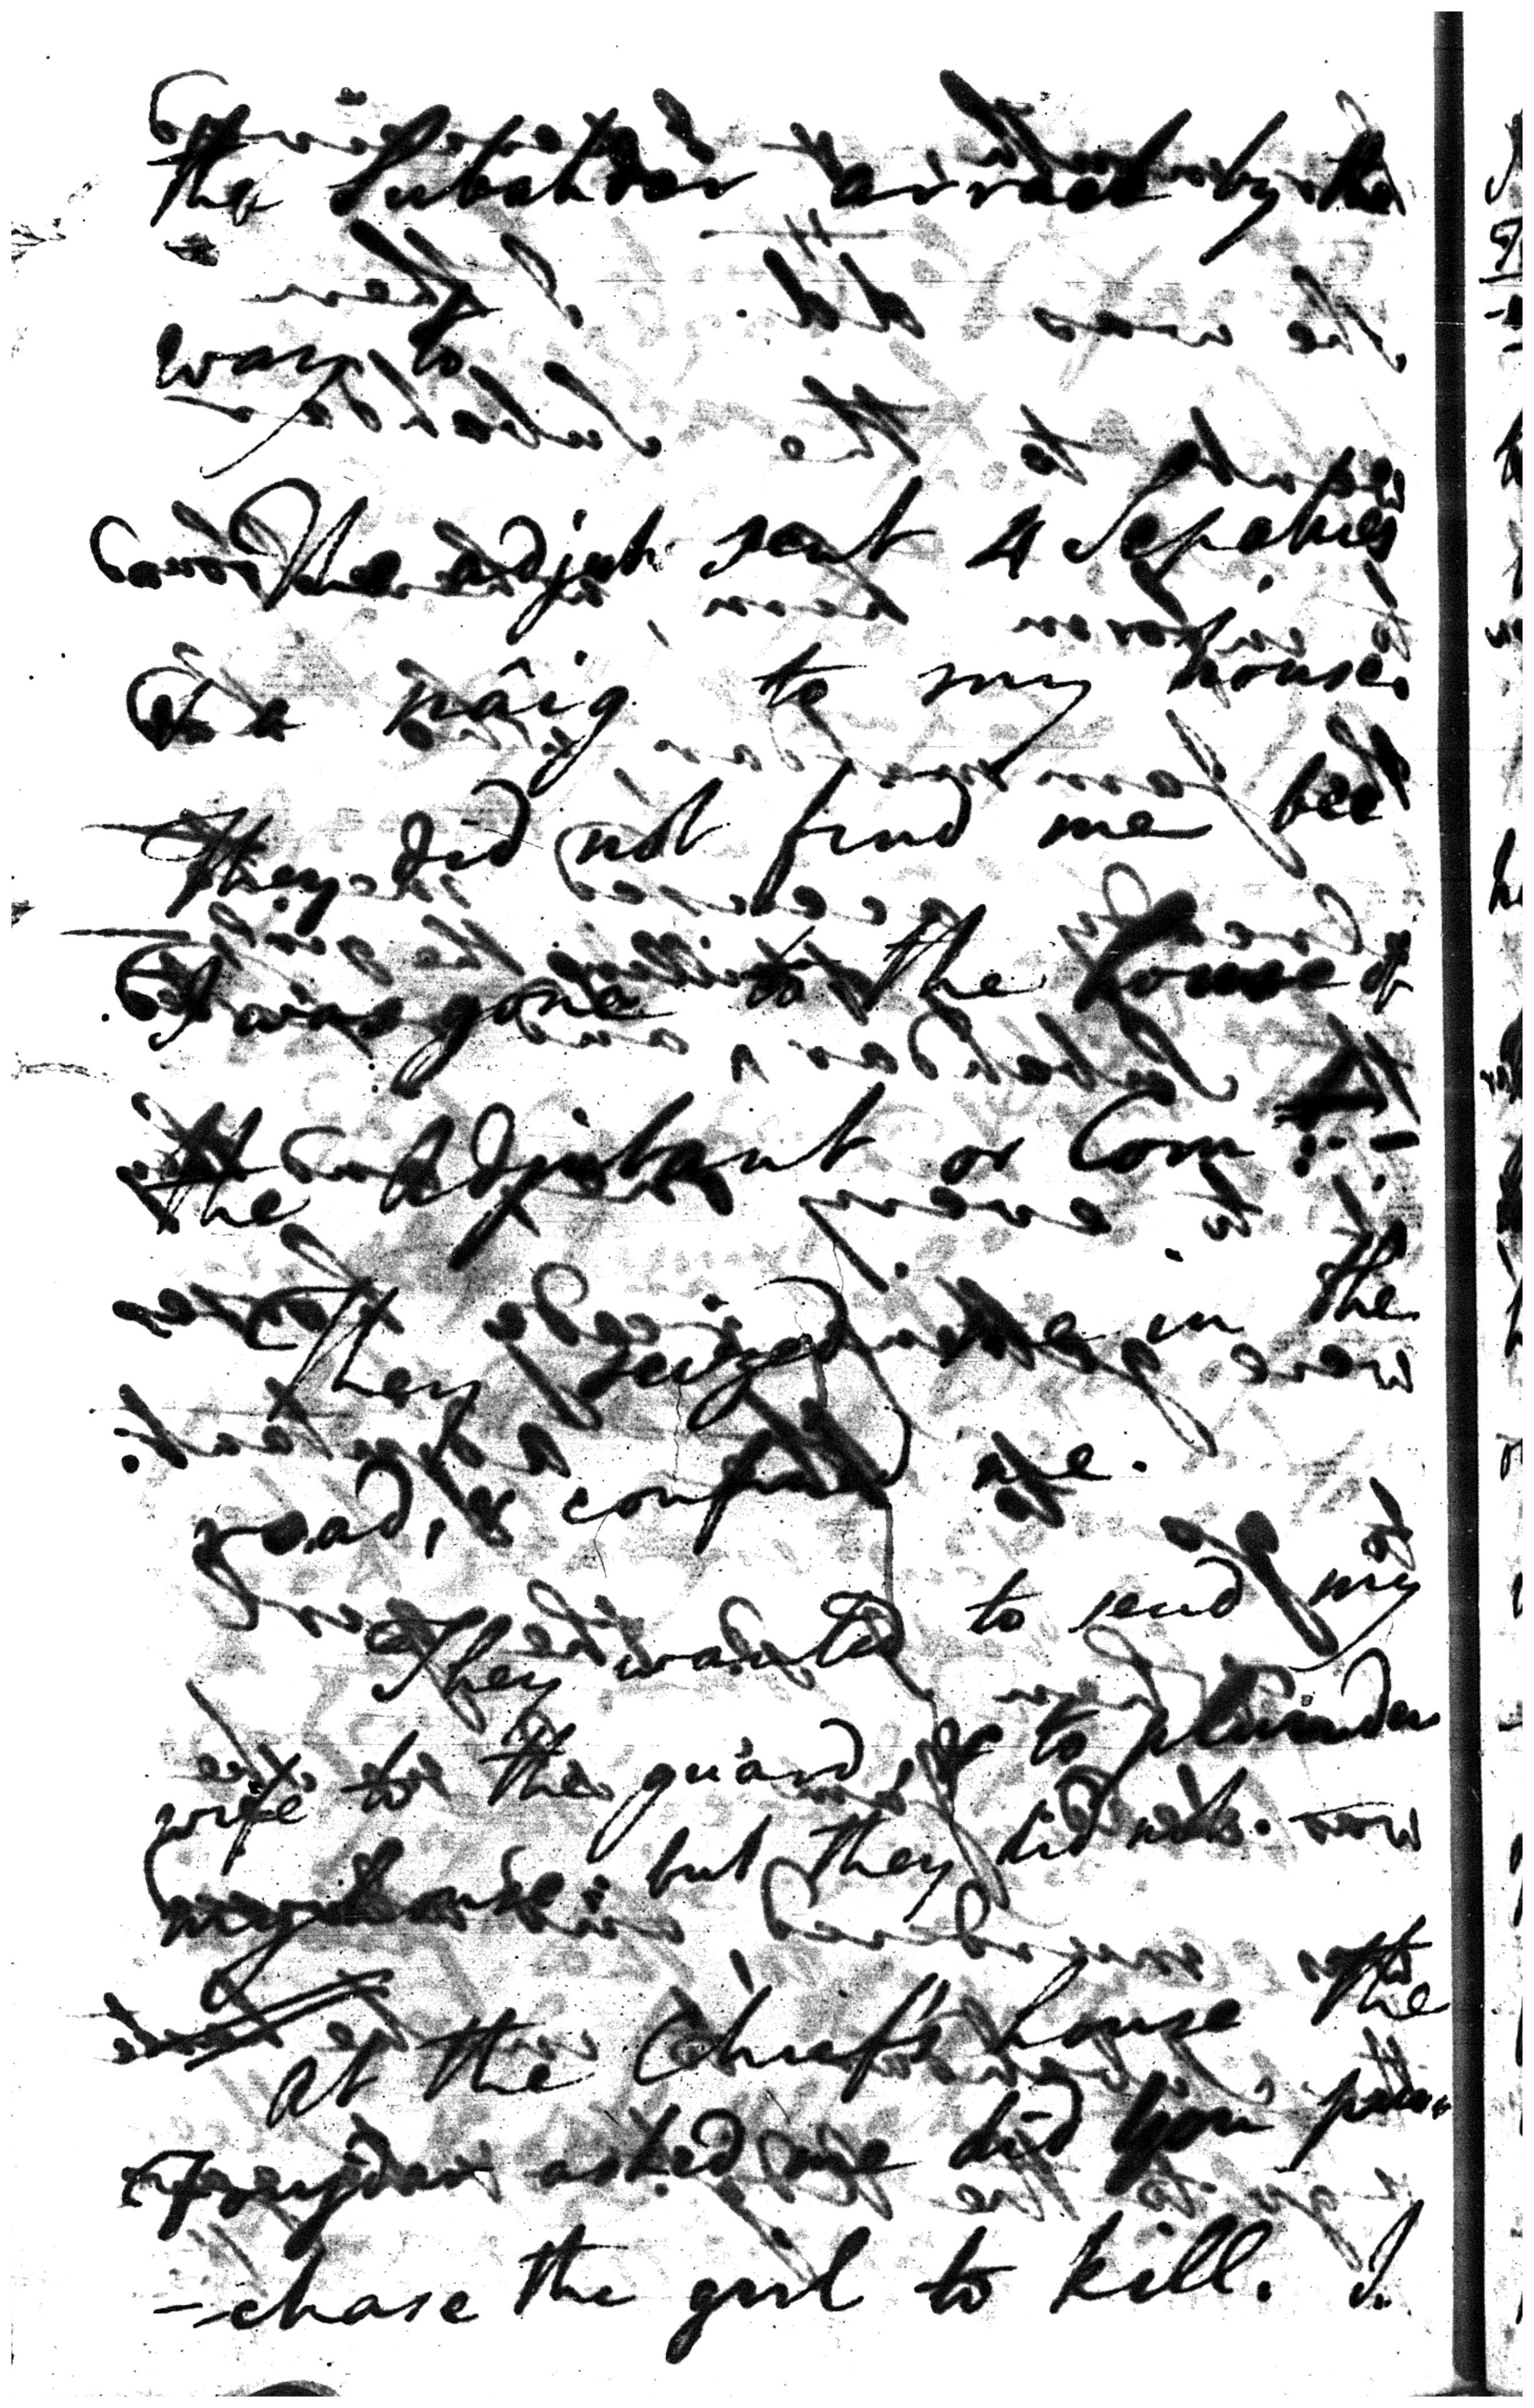 the Subahdar arrived by the
way to
The adjut. sent 4 Sepahies
& a nâig to my house.
They did not find me bec
I was gone to the house of
the Adjutant or Com
They seized me in the
road, & confined me.
They wanted to send my
wife to the guard & to plunder
my house; but they did not.
At the Chief's house the
asked me did you pur-
-chase the girl to kill. I